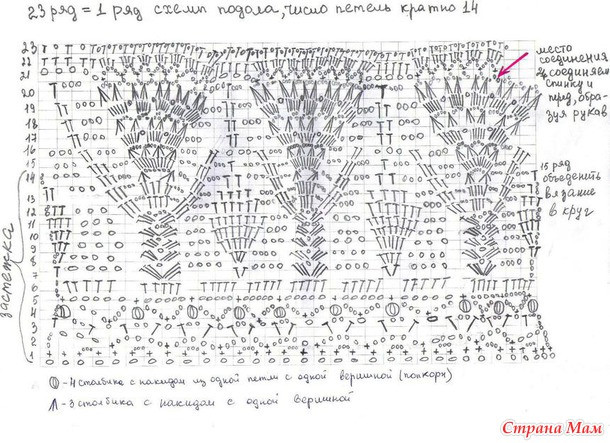 23 ряд = 1 ряд схемы подола, число петель кратно 14
23
22
21
20
19
18
17
16
15
14
13
12
11
10
9
8
7
6
5
4
3
2
1
застежка
место
соединения
соединяем
спинку и
перед, обра-
зуя рукав
15 ряд
объеденить
вязание
в круг
- 4 столбика с накидом из одной петли с одной вершиной (попкорн)
- 3 столбика с накидом с одной вершиной
Страна Мам